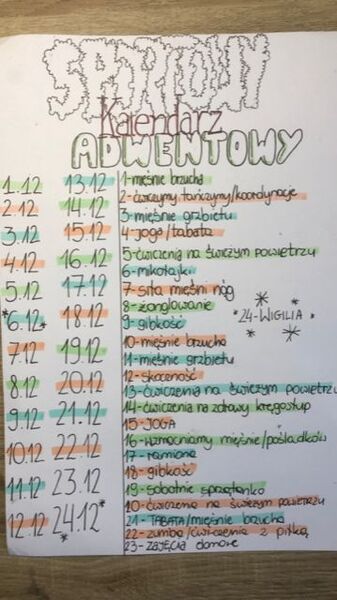 SPORTOWY
Kalendarz
ADWENTOWY
1.12 13.12
2.12 14.12
3.12 15.12
4.12 16.12
5.12 17.12
*6.12* 18.12
7.12 19.12
8.12 20.12
9.12 21.12
10.12 22.12
11.12 23.12
12.12 *24.12*
1-mięśnie brzucha
2-ćwiczymy tańczymy/koordynacje
3-mięśnie grzbietu
4-joga/tabata
5-ćwiczenia na świeżym powietrzu
6-mikołajki
7-siła mięśni nóg
8-żonglowanie
9-gibkość
10-mięśnie brzucha
11-mięśnie grzbietu
12-skoczność
13-ćwiczenia na świeżym powietrzu
14-ćwiczenia na zdrowy kręgosłup
15-JOGA
16-wzmacniamy mięśnie/pośladków
17-ramiona
18-gibkość
19-sobotnie sprzątanko
20-ćwiczenia na świeżym powietrzu
21-TABATA/mięśnie brzucha
22-zumba/ćwiczenia z piłką
23-zajęcia domowe
*24-WIGILIA*